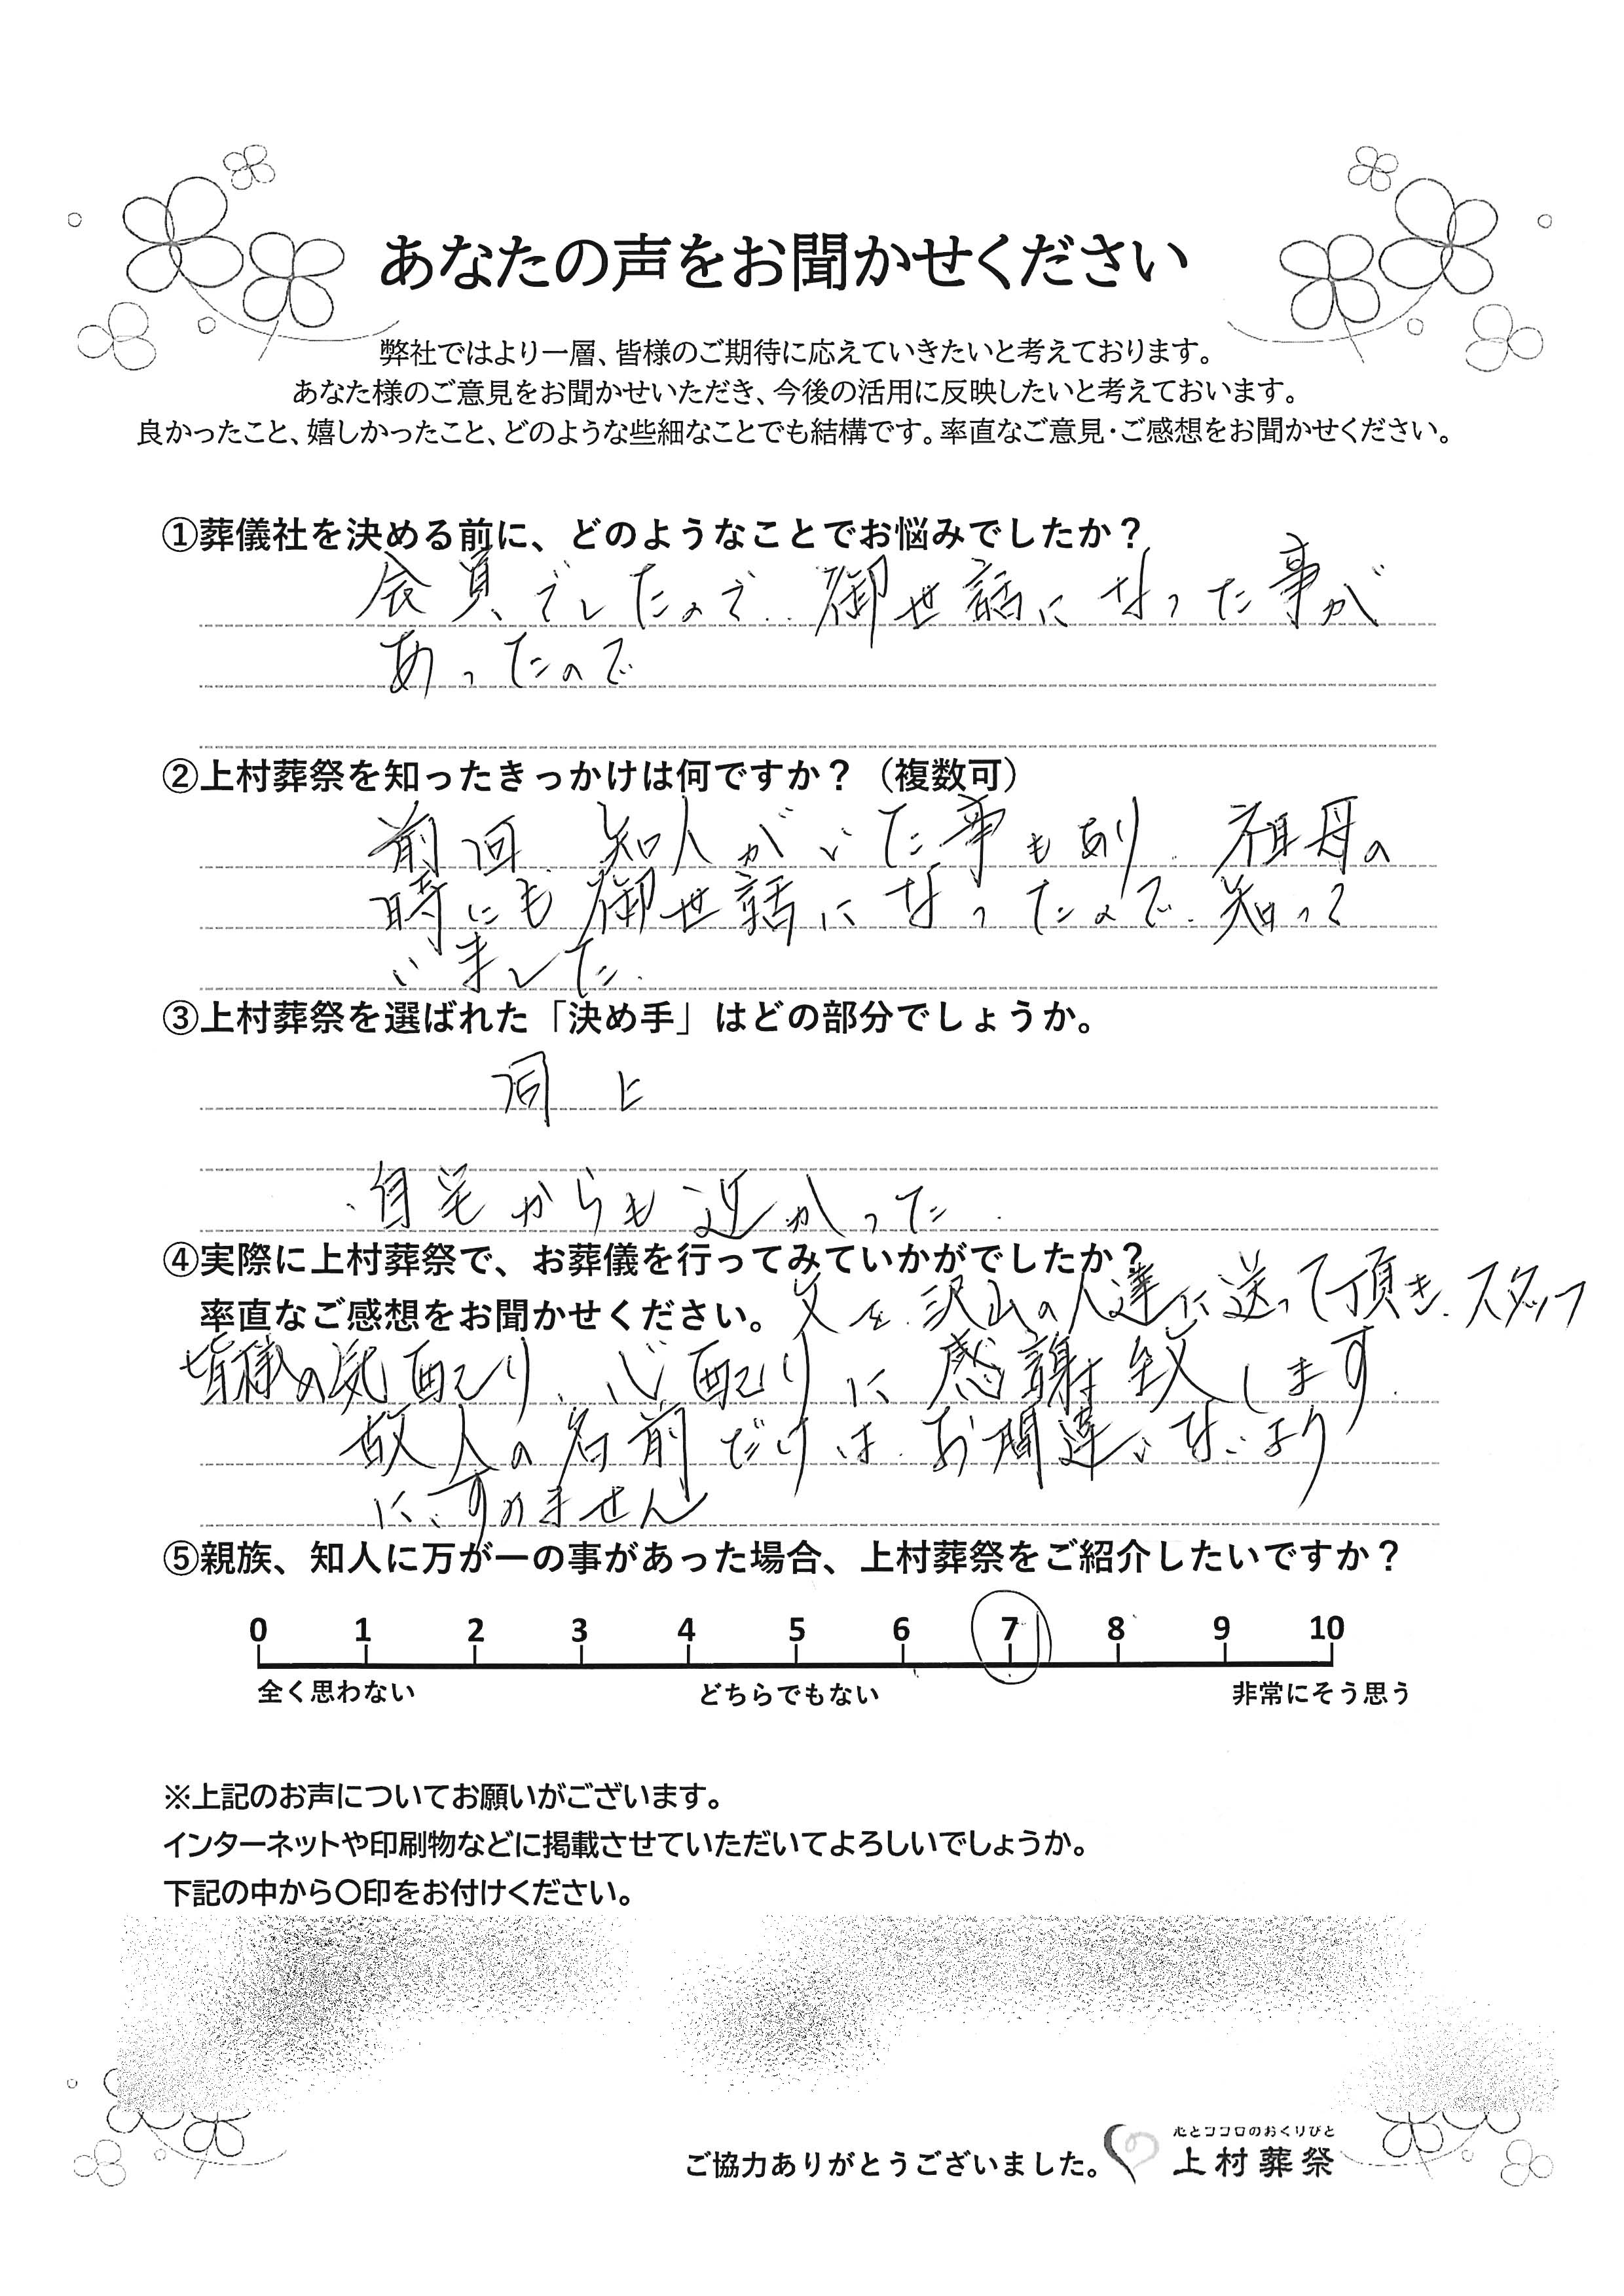 あなたの声をお聞かせください
弊社ではより一層、皆様のご期待に応えていきたいと考えております。
あなた様のご意見をお聞かせいただき、今後の活用に反映したいと考えておいます。
良かったこと、嬉しかったこと、どのような些細なことでも結構です。率直なご意見・ご感想をお聞かせください。
①葬儀社を決める前に、どのようなことでお悩みでしたか？
会員でしたので、御世話になった事が
あったので
②上村葬祭を知ったきっかけは何ですか？（複数可）
前回、知人がいた事もあり、祖母の
時にも御世話になったので、知って
いました。
③上村葬祭を選ばれた「決め手」はどの部分でしょうか。
同上
・自宅からも近かった。
④実際に上村葬祭で、お葬儀を行ってみていかがでしたか？
率直なご感想をお聞かせください。父を沢山の人達に送って頂き、スタッフ
皆様の気配り、心配りに感謝致します。
故人の名前だけは、お間違いないよう
に、すみません
⑤親族、知人に万が一の事があった場合、上村葬祭をご紹介したいですか？
0 1 2 3 4 5 6 7 8 9 10
全く思わない どちらでもない 非常にそう思う
※上記のお声についてお願いがございます。
インターネットや印刷物などに掲載させていただいてよろしいでしょうか。
下記の中から〇印をお付けください。
心とココロのおくりびと
ご協力ありがとうございました。 上村葬祭